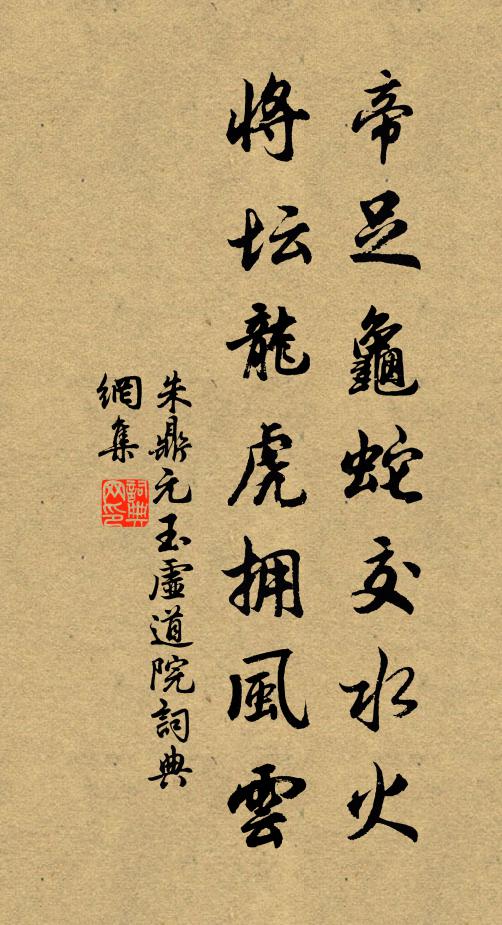 帝足龜蛇交水火
将坛龍虎拥風雲
朱鼎元玉虛道院詞典
網集
詞典
网印